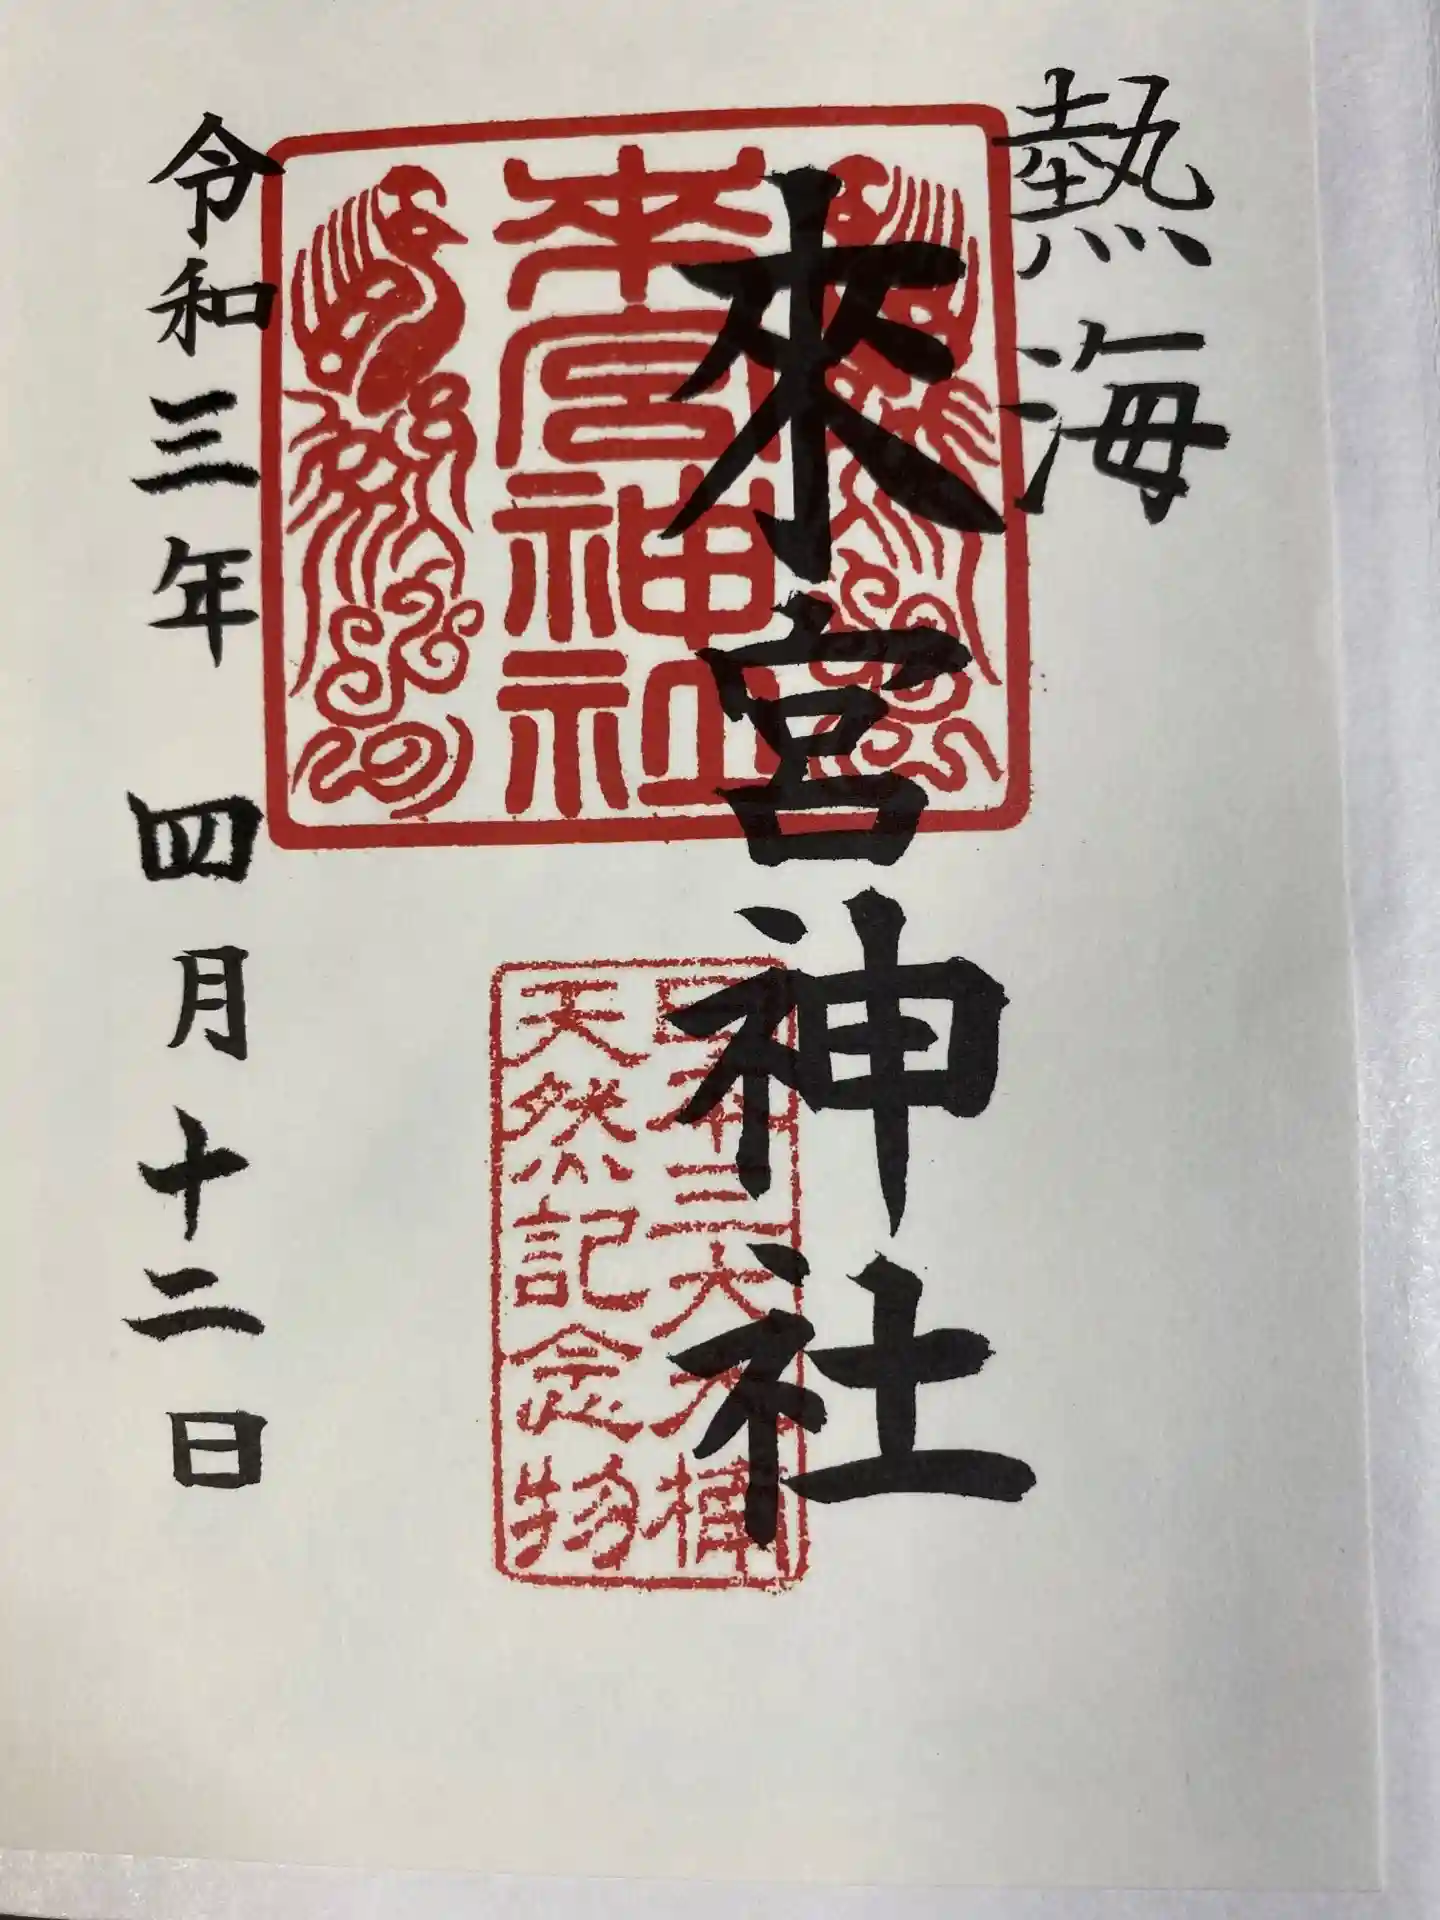 熱海
來宮神社
來宮神社
日本三大大楠
天然記念物
令和三年 四月十二日